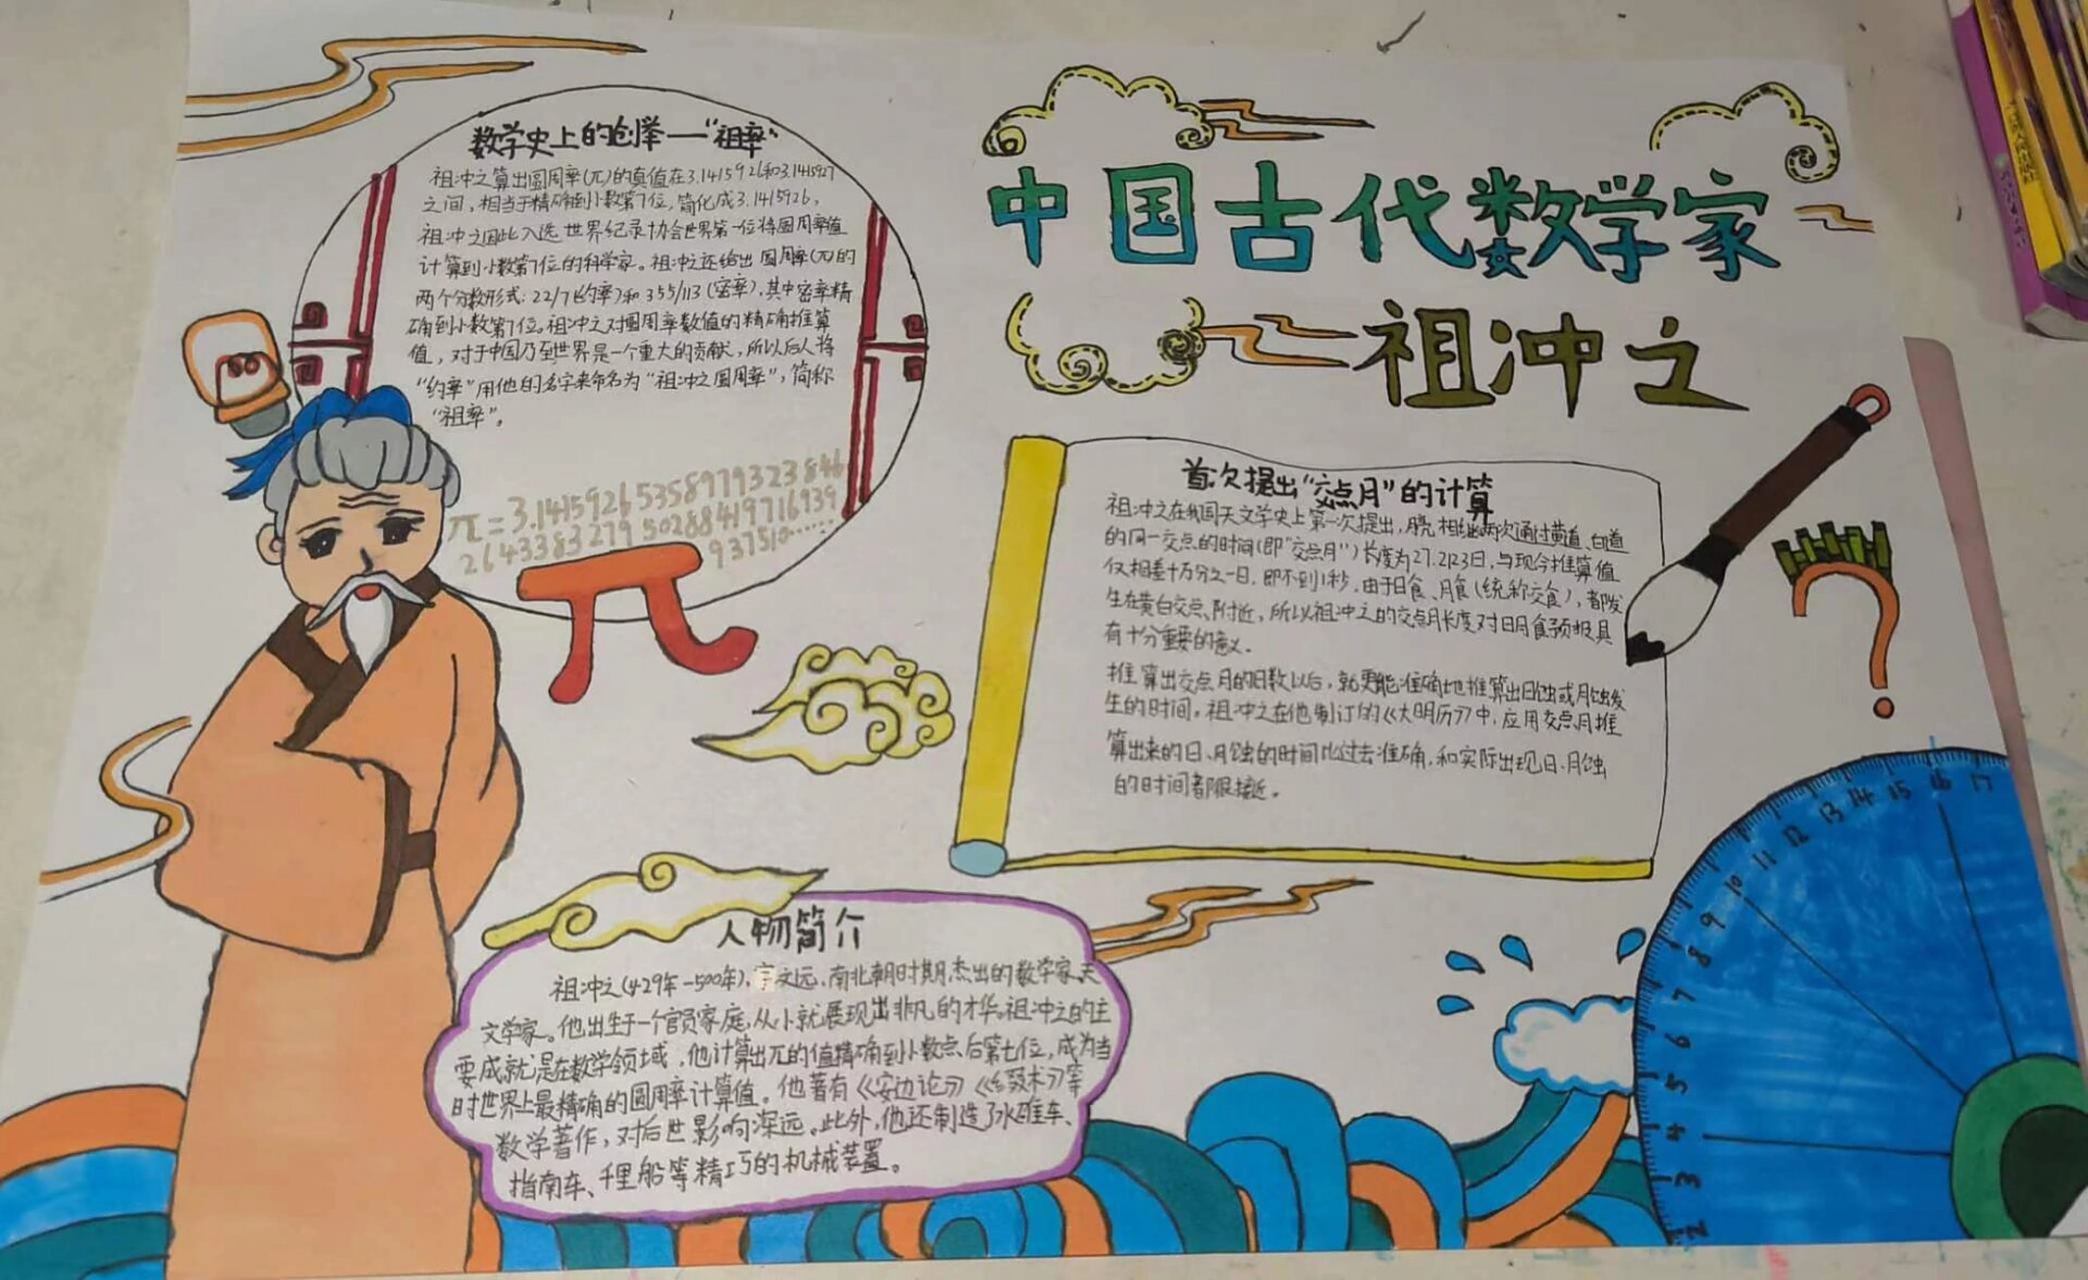 中国古代数学家
——祖冲之
数学史上的创举——“祖率”
祖冲之算出圆周率(π)的真值在3.1415926和3.1415927
之间,相当于精确到小数第7位,简化成3.1415926,
祖冲之因此入选世界纪录协会世界第一位将圆周率值
计算到小数第7位的科学家。祖冲之还给出圆周率(π)的
两个分数形式:22/7(约率)和355/113(密率),其中密率精
确到小数第7位。祖冲之对圆周率数值的精确推算
值,对于中国乃至世界是一个重大的贡献,所以后人将
“约率”用他的名字来命名为“祖冲之圆周率”,简称
“祖率”。
π=3.1415926535897932384 6
26433832795028841971 6939
937510……
π
首次提出“交点月”的计算
祖冲之在我国天文学史上第一次提出,月亮相继两次通过黄道、白道
的同一交点的时间(即“交点月”)长度为27.2123日,与现今推算值
仅相差十万分之一日,即不到1秒,由于日食、月食(统称交食),都发
生在黄白交点附近,所以祖冲之的交点月长度对日月食预报具
有十分重要的意义。
推算出交点月的日数以后,就更能准确地推算出日蚀或月蚀发
生的时间。祖冲之在他制订的《大明历》中,应用交点月推
算出来的日、月蚀的时间比过去准确,和实际出现日、月蚀
的时间都很接近。
人物简介
祖冲之(429年-500年),字文远,南北朝时期杰出的数学家,天
文学家。他出生于一个官员家庭,从小就展现出非凡的才华。祖冲之的主
要成就是在数学领域,他计算出π的值精确到小数点后第七位,成为当
时世界上最精确的圆周率计算值。他著有《安边论》《缀术》等
数学著作,对后世影响深远。此外,他还制造了水碓车、
指南车、千里船等精巧的机械装置。
2 3 4 5 6 7 8 9 10 11 12 13 14 15 16 17